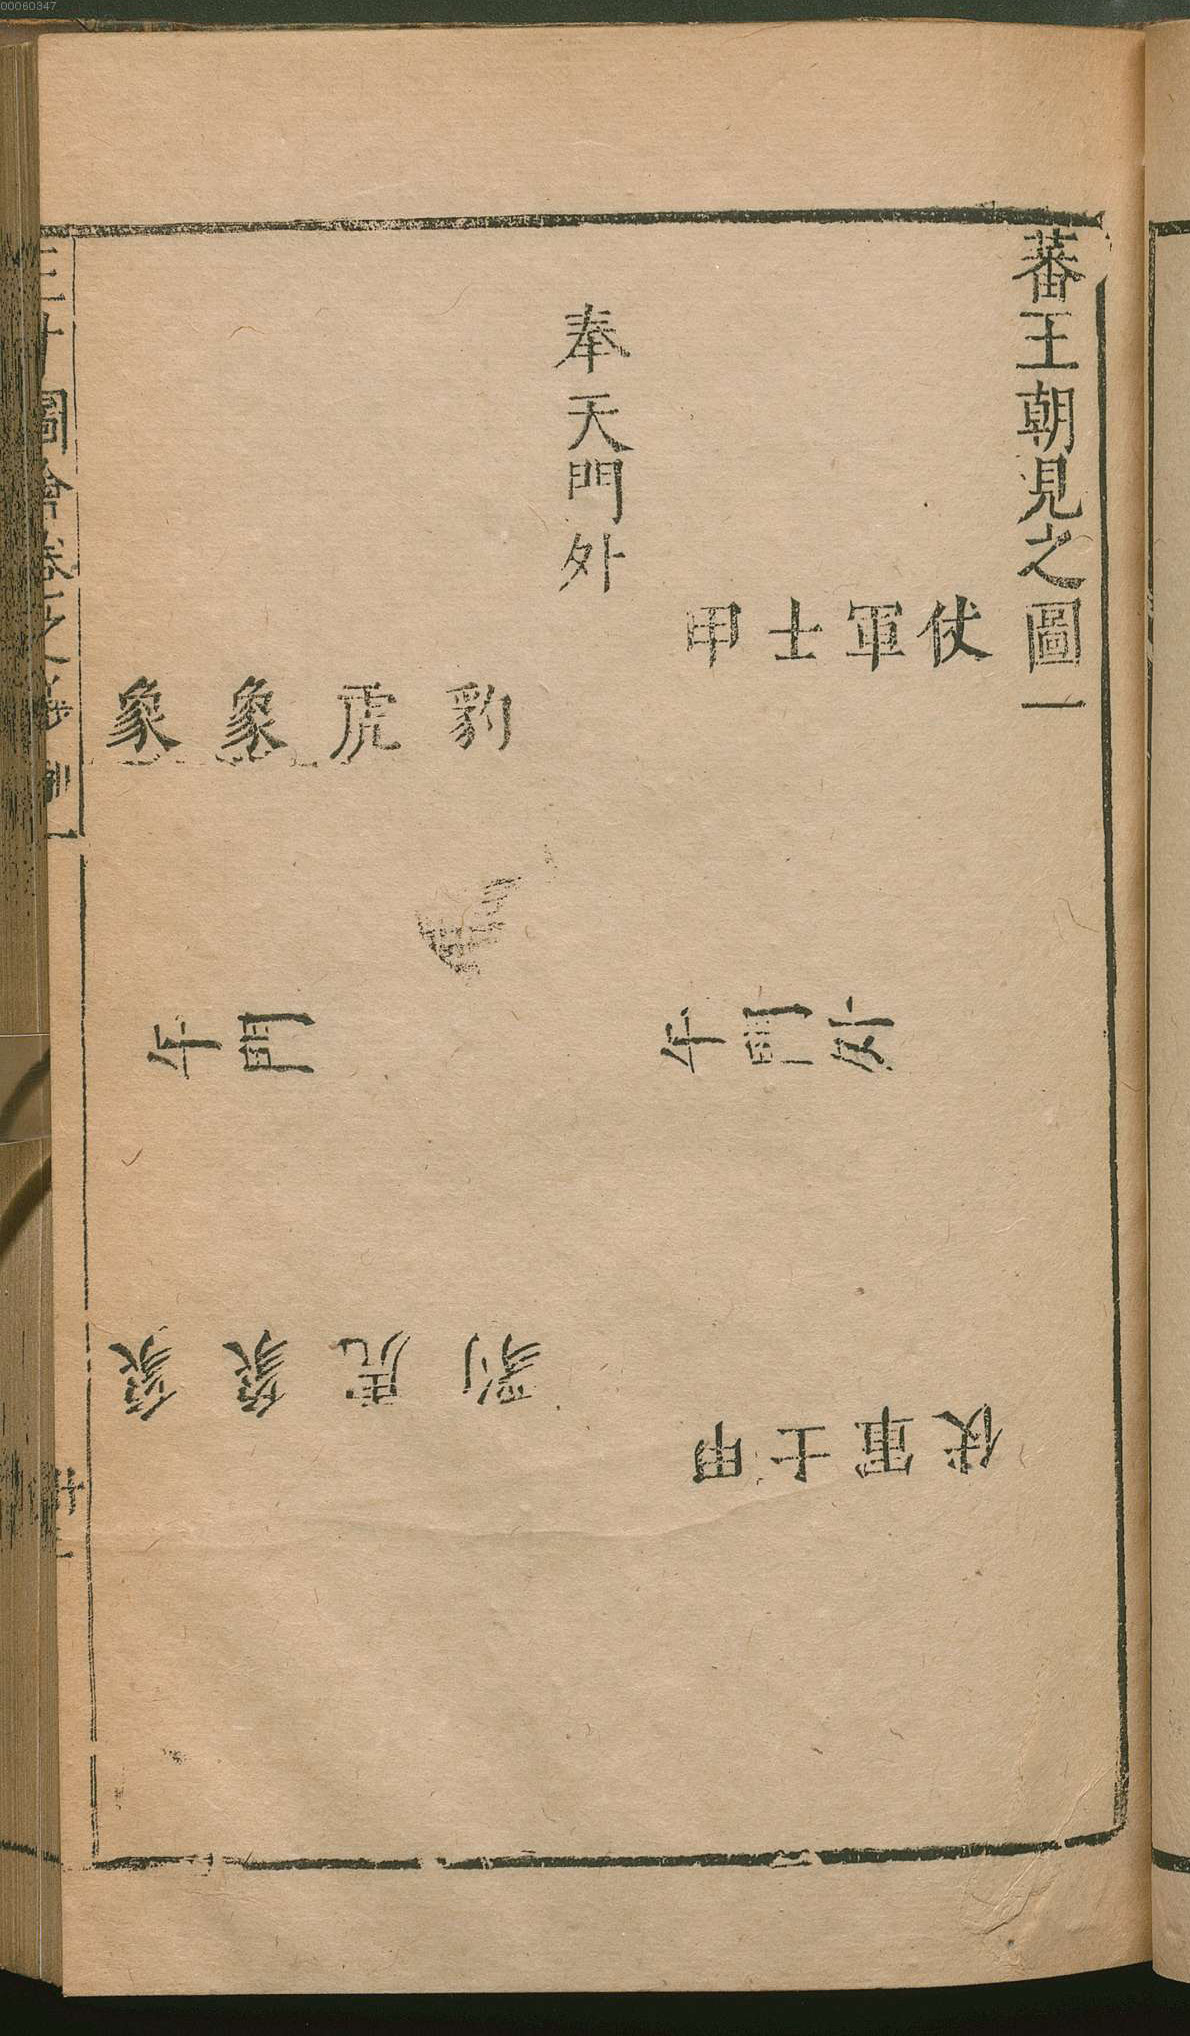 00060347
蕃王朝見之圖一
奉天門外
仗軍士甲
豹虎象象
午門外
午門
豹虎象象
仗軍士甲
三才圖會卷之